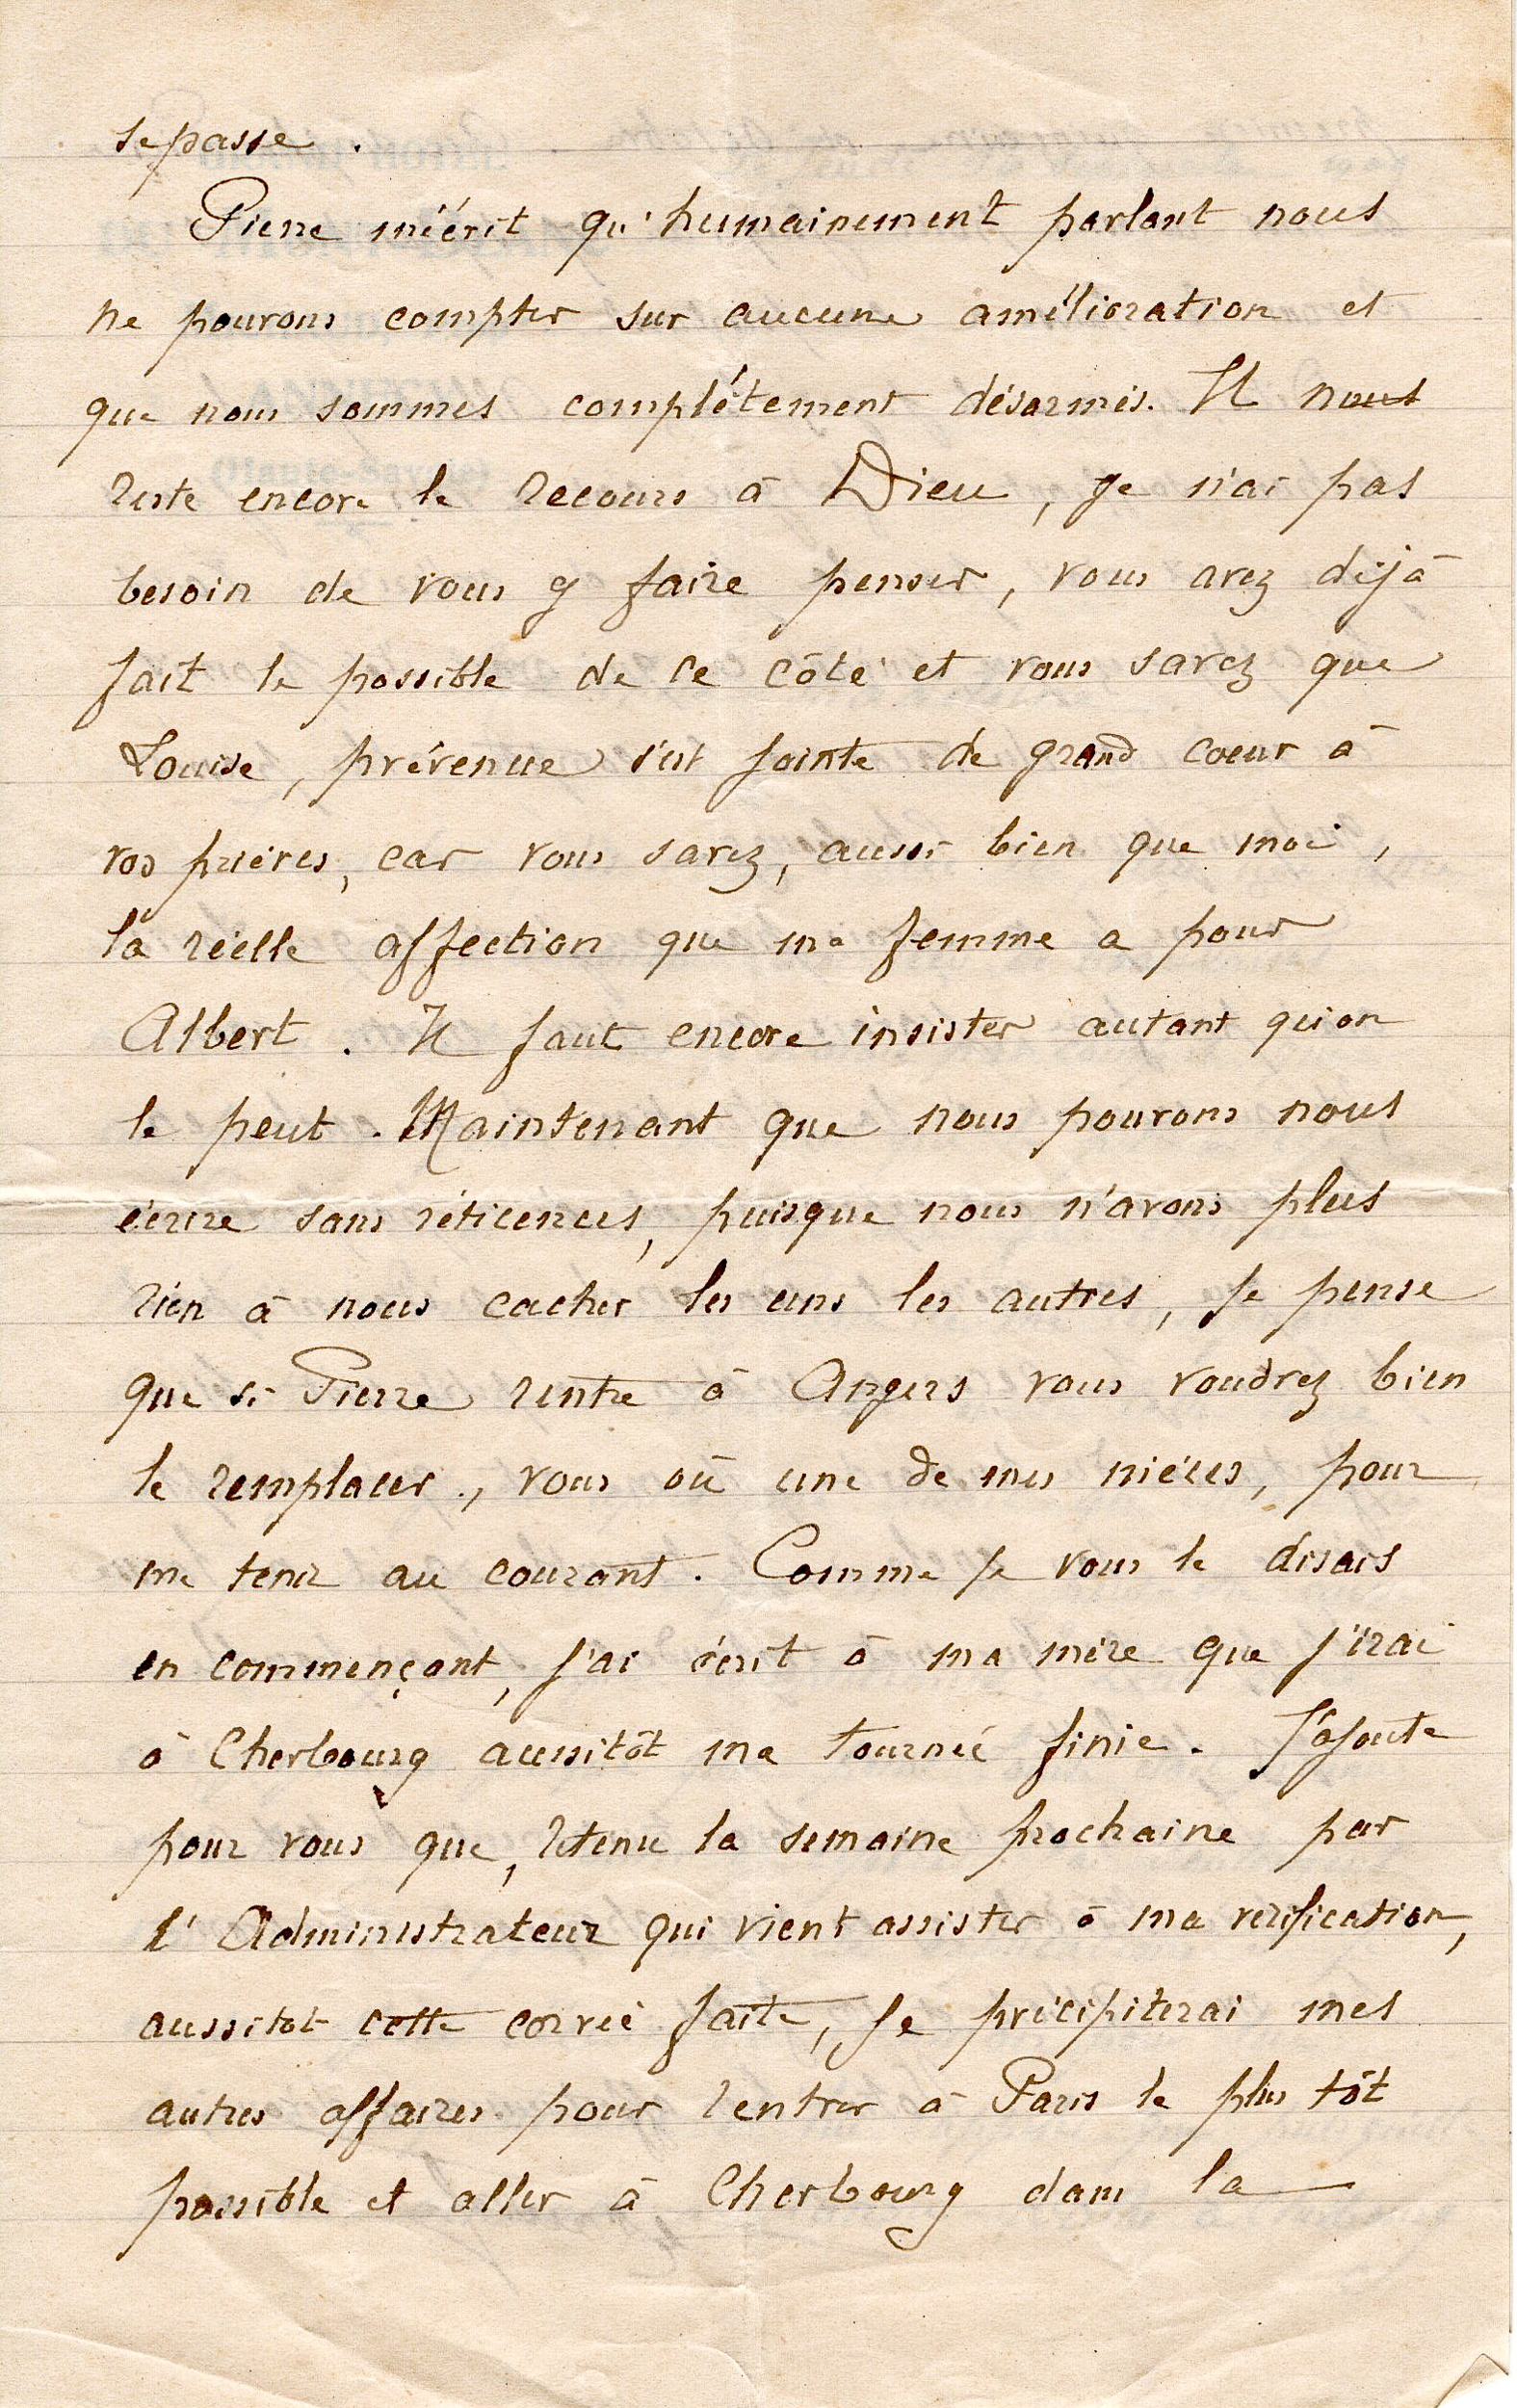 se passe.
Pierre m'écrit qu'humainement parlant nous
ne pouvons compter sur aucune amélioration et
que nous sommes complètement désarmés. Il nous
reste encore le recours à Dieu, je n'ai pas
besoin de vous y faire penser, vous avez déjà
fait le possible de ce côté et vous savez que
Louise, prévenue s'est jointe de grand coeur à
vos prières, car vous savez, aussi bien que moi,
la réelle affection que ma femme a pour
Albert. Il faut encore insister autant qu'on
le peut. Maintenant que nous pouvons nous
écrire sans réticences, puisque nous n'avons plus
rien à nous cacher les uns les autres, je pense
que si Pierre rentre à Angers vous voudrez bien
le remplacer, vous où une de mes nièces, pour
me tenir au courant. Comme je vous le disais
en commençant, j'ai écrit à ma mère que j'irai
à Cherbourg aussitôt ma tournée finie. J'ajoute
pour vous que, retenu la semaine prochaine par
l'Administrateur qui vient assister à ma vérification,
aussitot cette corvée faite, je précipiterai mes
autres affaires pour rentrer à Paris le plus tôt
possible et aller à Cherbourg dans la